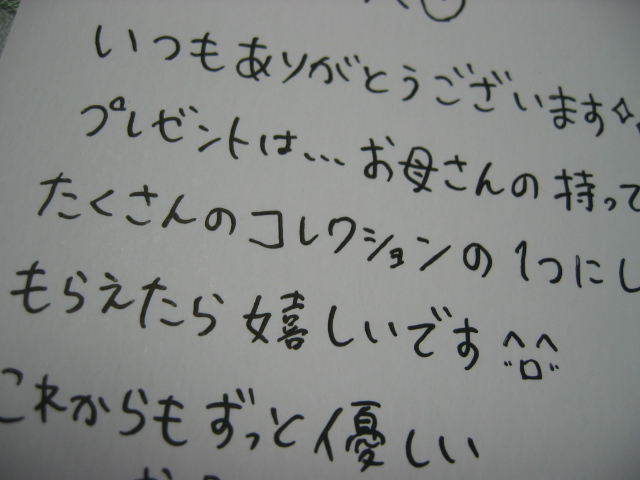 いつもありがとうございます☆
プレゼントは...お母さんの持って
たくさんのコレクションの1つにし
もらえたら嬉しいです^ロ^
これからもずっと優しい